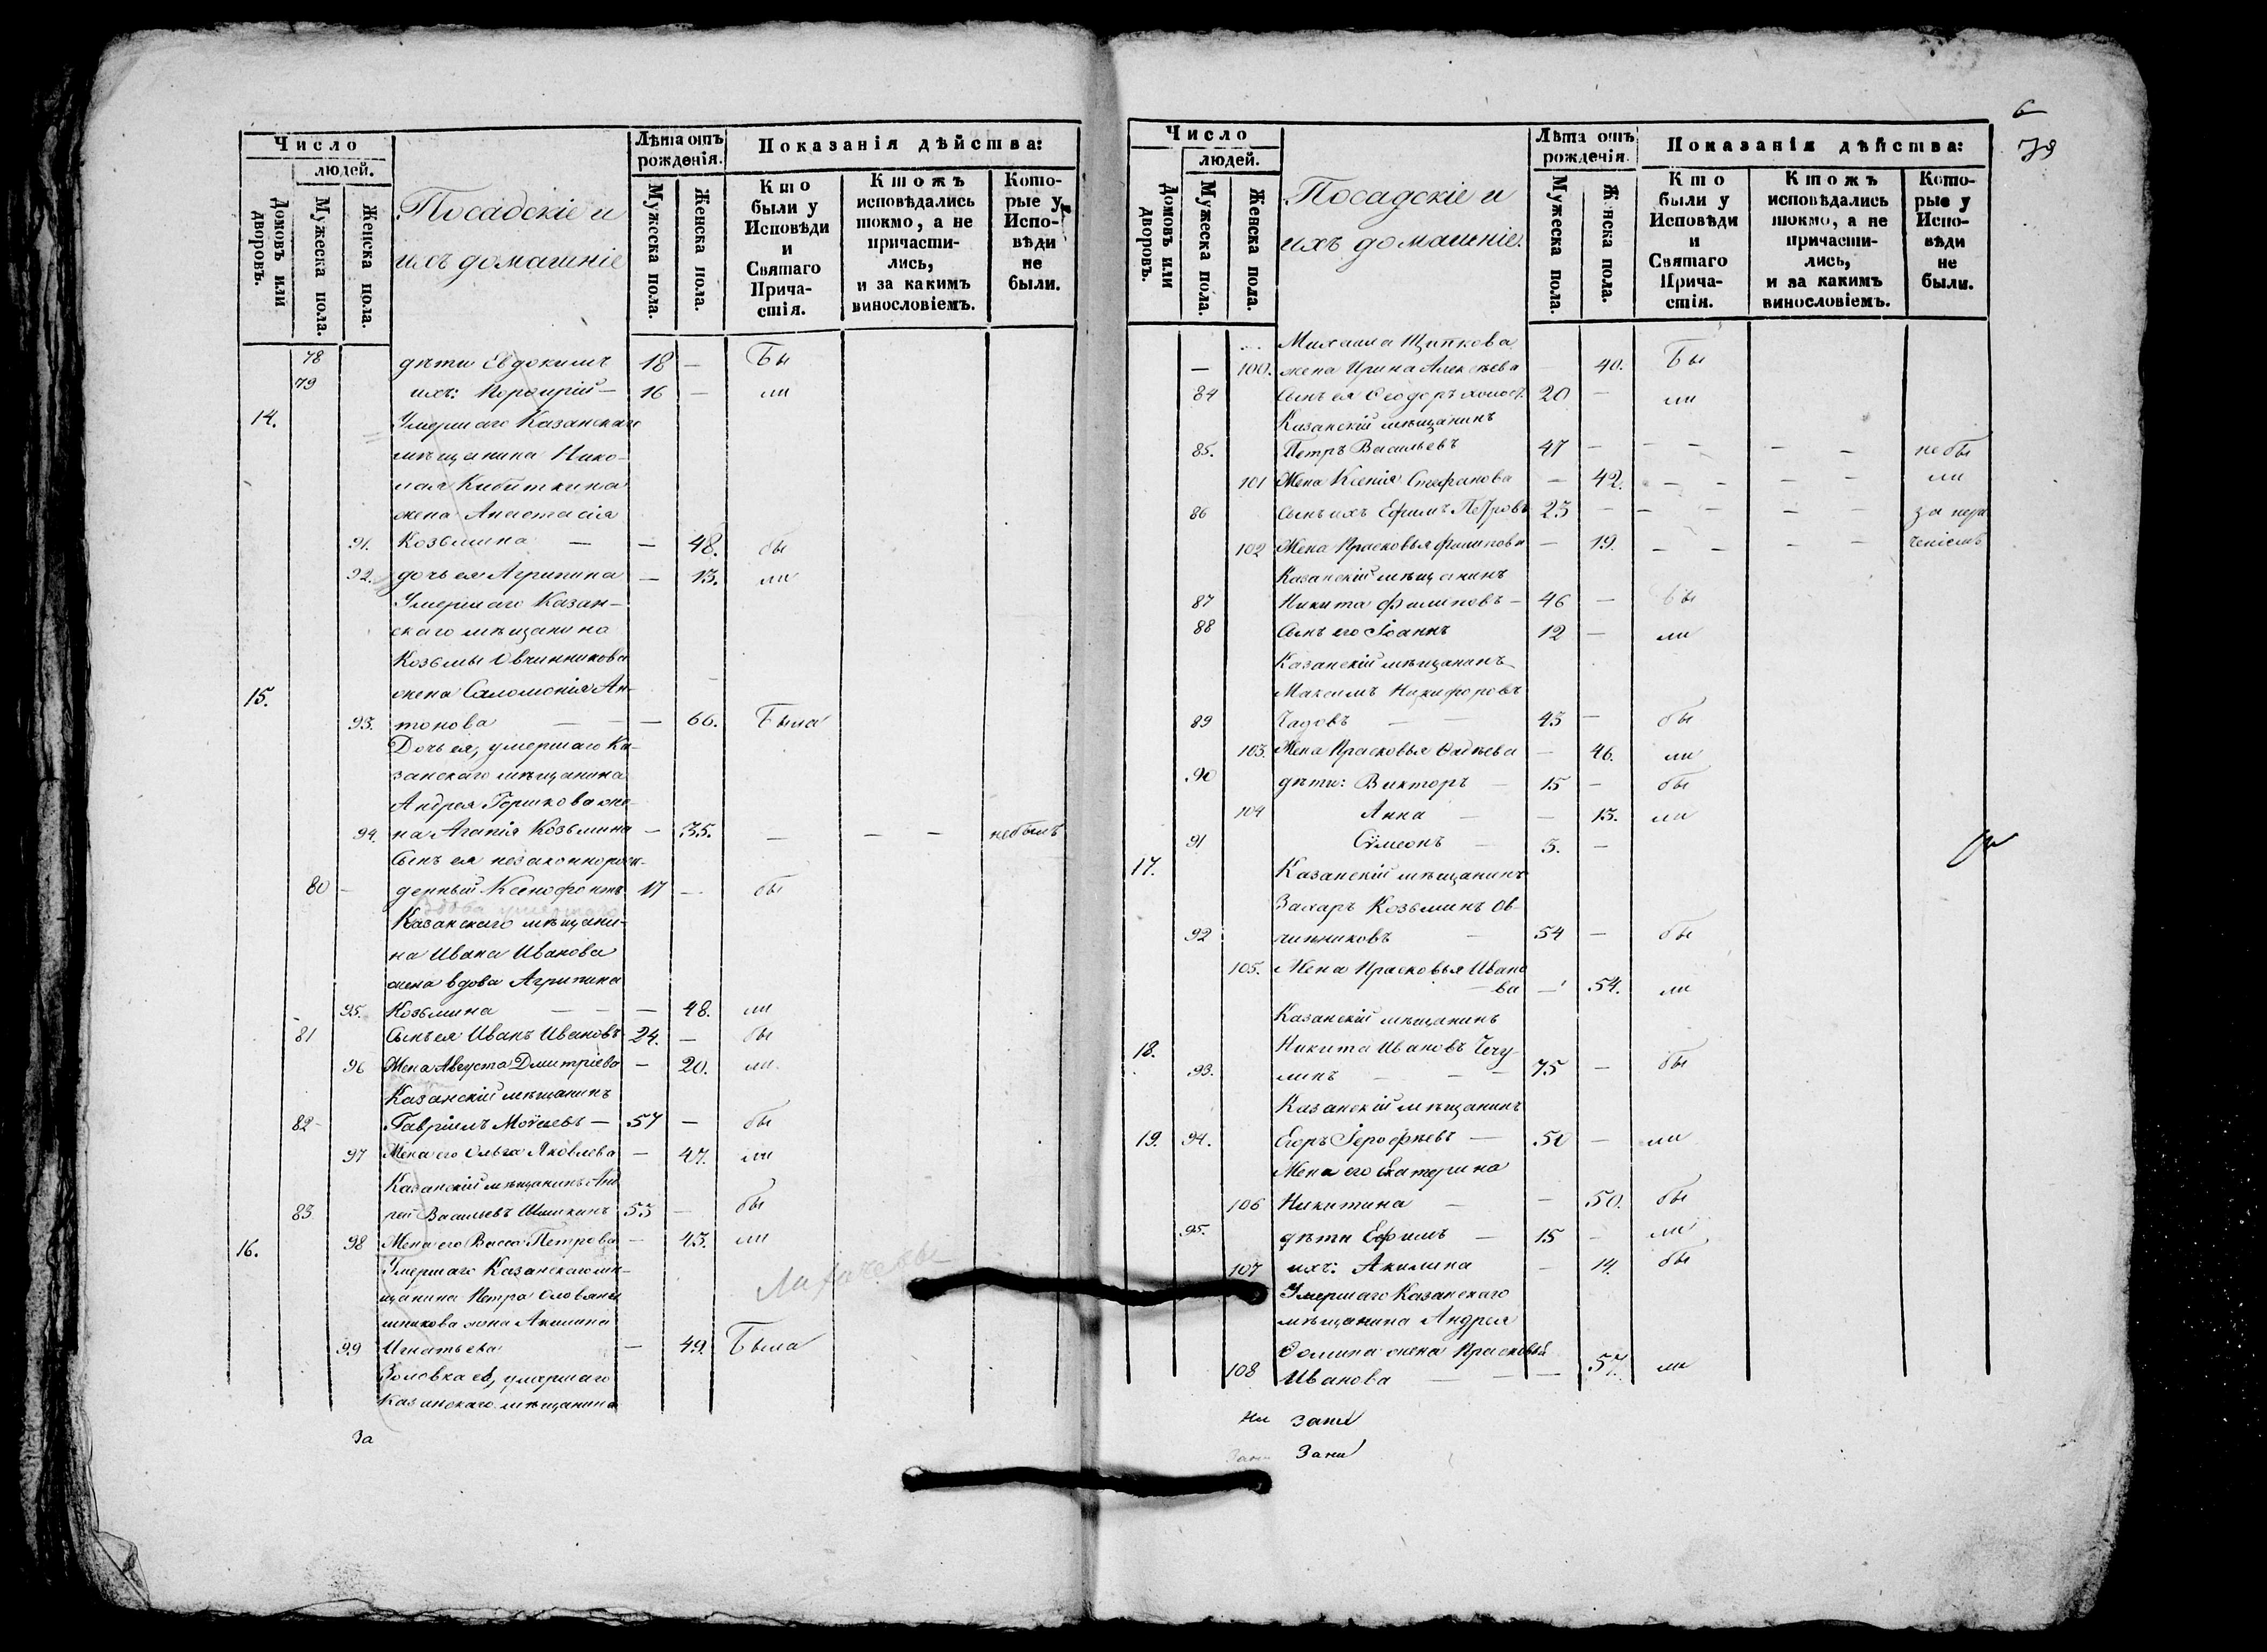 Число
людей.
Домовъ или дворовъ.
Мужеска пола.
Женска пола.
Посадскіе и
ихъ домашніе
Лѣта отъ
рожденія.
Мужеска пола.
Женска пола.
Показанія дѣйства:
Кто
были у
Исповѣди
и
Святаго
Прича-
стія.
Ктожъ
исповѣдались
токмо, а не
причасти-
лись,
и за какимъ
винословіемъ.
Кото-
рые у
Испо-
вѣди
не
были.
78 дѣти Евдокимъ 18 — Бы
79 ихъ: — 16 — ли
14. Умершаго Казанскаго
мѣщанина Нико-
лая Кибиткина
жена Анастасія
91. Козьмина — — 48. бы
92. дочь ея Агрипина — 13. ли
Умершаго Казан-
скаго мѣщанина
Козьмы Овчинникова
15. жена Саломонія Ан-
93. тонова — — — 66. Была
Дочь ея, умершаго Ка-
занскаго мѣщанина
Андрея Горшкова же-
94. на Агапія Козьмина — 35. — — — небылъ
Сынъ ея незаконнорож-
80 — денный Ксенофонтъ 17 — бы
Вдова умершаго
Казанскаго мѣщани-
на Ивана Иванова
жена вдова Агрипина
95. Козьмина — — — 48. ли
81 Сынъ ея Иванъ Ивановъ 24. — бы
96 Жена Августа Дмитріева — 20. ли
Казанскій мѣщанинъ
82 Гавріилъ Моѵсеевъ — 57 — бы
97 Жена его Ольга Яковлева — 47. ли
Казанскій мѣщанинъ Анд
83 рей Васильевъ Шишкинъ 53 — бы
16. 98 Жена его Васса Петрова — 43. ли
Умершаго Казанскаго мѣ-
щанина Петра Оловяни
шникова жена Акилина
99 Игнатьева — 49. Была
Золовка ея, умершаго
Казанскаго мѣщанина
За
6
79
Число
людей.
Домовъ или дворовъ.
Мужеска пола.
Женска пола.
Посадскіе и
ихъ домашніе.
Лѣта отъ
рожденія.
Мужеска пола.
Женска пола.
Показанія дѣйства:
Кто
были у
Исповѣди
и
Святаго
Прича-
стія.
Ктожъ
исповѣдались
токмо, а не
причасти-
лись,
и за какимъ
винословіемъ.
Кото-
рые у
Испо-
вѣди
не
были.
Михаила Щипкова
— 100. жена Ирина Алексѣева 40. Бы
84 Сынъ ея Ѳеодоръ холост. 20 — ли
Казанскій мѣщанинъ
85. Петръ Васильевъ 47 — — — — — небы
101 Жена Ксенія Стефанова — 42. — — — — ли
86 Сынъ ихъ Ефимъ Петровъ 23 — — — — — за нера
102 Жена Прасковья Филипова — 19. — — — — ченіемъ
Казанскій мѣщанинъ
87 Никита Филиповъ — 46 — бы
88 Сынъ его Іоаннъ 12 — ли
Казанскій мѣщанинъ
Максимъ Никифоровъ
89 Чадовъ — — 45 — бы
103. Жена Прасковья Фадѣева — 46. ли
90 дѣти: Викторъ — 15 — бы
104 Анна — — 13. ли
91 Сѵмеонъ — 3. —
17. Казанскій мѣщанинъ
Захаръ Козьминъ Ов-
92 чинниковъ — 54 — бы
105. Жена Прасковья Ивано
ва — 54. ли
Казанскій мѣщанинъ
18. Никита Ивановъ Чечу-
93. линъ — — — 75 — бы
Казанскій мѣщанинъ
19. 94. Егоръ Іерофѣевъ — 50 — ли
Жена его Екатерина
106 Никитина — — 50. бы
95. дѣти Ефимъ — 15 — ли
107 ихъ: Акилина — 14. бы
Умершаго Казанскаго
мѣщанина Андрея
Ѳомина жена Прасковья
108 Иванова — — — 57. ли